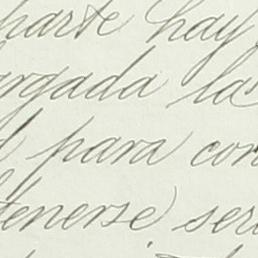 parte hay
argada la
para con
tenerse ser